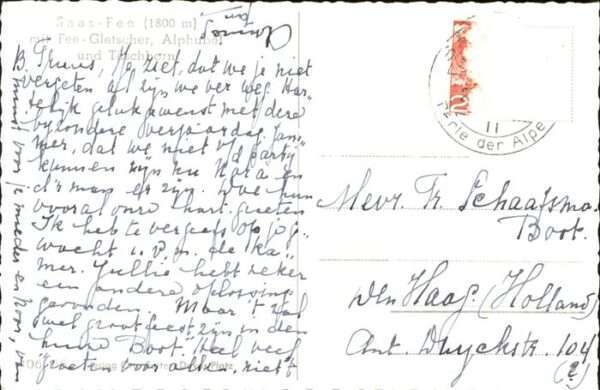 Saas-Fee (1800 m)
mit Fee-Gletscher, Alphubel
und Täschhorn
B. Truus, Je ziet, dat we je niet
vergeten al zijn we ver weg. Har-
telijk gelukgewenst met deze
bijzondere verjaardag. Jam-
mer, dat we niet op d party
kunnen zijn nu
er zijn. Doe hun
vooral onze hart. groeten
Ik heb te vergeefs op je
gewacht v.m. de ka-
mer. Jullie hebt zeker
een andere oplossing
gevonden. Maar 't zal
wel groot feest zijn in den
huize Boot. Heel veel
groeten voor allen, niet
minst voor je moeder en
Perle der Alpen
11
Mevr. Tr. Schaafsma
Boot.
Den Haag. (Holland)
Ant. Duyckstr. 104